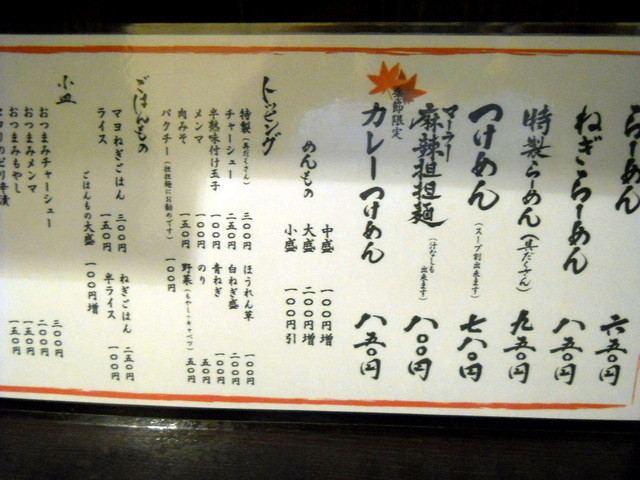 らーめん 六五〇円
ねぎらーめん 八五〇円
特製らーめん（具だくさん） 九五〇円
つけめん（スープ割出来ます） 七八〇円
マーラー
麻辣担担麺（汁なしも出来ます） 八〇〇円
季節限定
カレーつけめん 八五〇円
めんもの
中盛 一〇〇円増
大盛 二〇〇円増
小盛 一〇〇円引
トッピング
特製（具だくさん） 三〇〇円
チャーシュー 二五〇円
半熟味付け玉子 一〇〇円
メンマ 一〇〇円
肉みそ 一五〇円
パクチー（担担麺にお勧めです） 一〇〇円
ほうれん草 一〇〇円
白ねぎ盛 二〇〇円
青ねぎ 一〇〇円
のり 五〇円
野菜（もやし・キャベツ） 五〇円
ごはんもの
マヨねぎごはん 三〇〇円
ライス 一五〇円
ねぎごはん 二五〇円
半ライス 一〇〇円
ごはんもの大盛 一〇〇円増
小皿
おつまみチャーシュー 三〇〇円
おつまみメンマ 二〇〇円
おつまみもやし 一五〇円
一五〇円